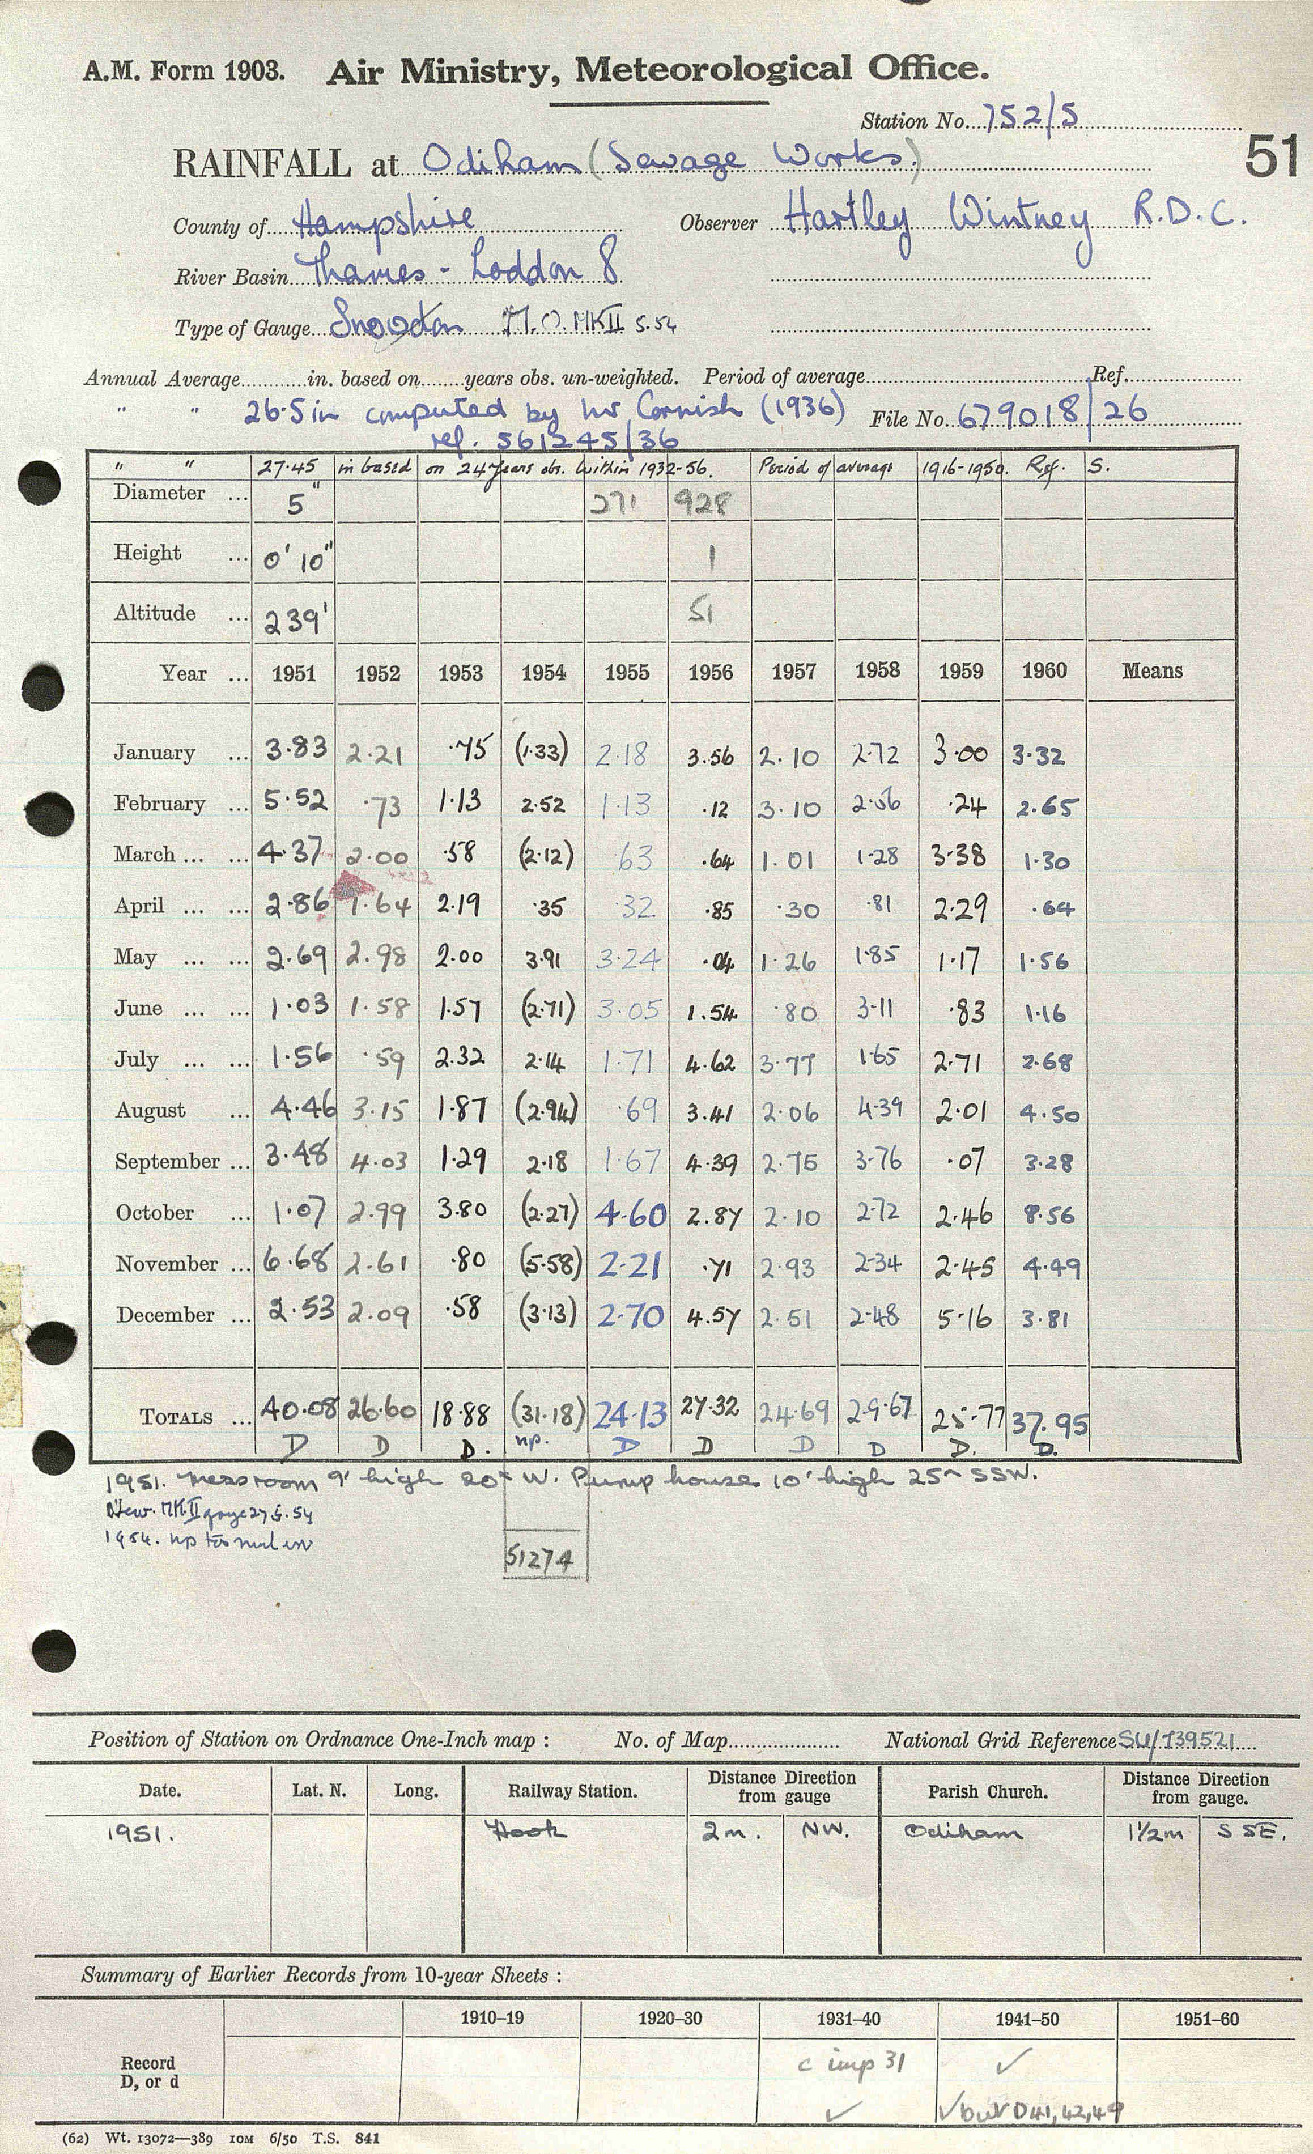 A.M. Form 1903. Air Ministry, Meteorological Office.
Station No. 752/5
51
RAINFALL at Odiham (Sewage Works.)
County of Hampshire Observer Hartley Wintney R.D.C.
River Basin Thames - Loddon 8
Type of Gauge Snowdon M.O. MKII 5.54
Annual Average in. based on years obs. un-weighted. Period of average Ref.
" " 26.5 in computed by Mr Cornish (1936) File No. 679018/26
ref. 561245/36
" " 27.45 in based on 24 years obs. within 1932-56. Period of average 1916-1950. Ref. S.
Diameter ... 5" 271 928
Height ... 0' 10" 1
Altitude ... 239' 51
Year ... 1951 1952 1953 1954 1955 1956 1957 1958 1959 1960 Means
January ... 3.83 2.21 .75 (1.33) 2.18 3.56 2.10 2.72 3.00 3.32
February ... 5.52 .73 1.13 2.52 1.13 .12 3.10 2.56 .24 2.65
March ... ... 4.37 2.00 .58 (2.12) .63 .64 1.01 1.28 3.38 1.30
April ... ... 2.86 1.64 2.19 .35 .32 .85 .30 .81 2.29 .64
May ... ... 2.69 2.98 2.00 3.91 3.24 .04 1.26 1.85 1.17 1.56
June ... ... 1.03 1.58 1.57 (2.71) 3.05 1.54 .80 3.11 .83 1.16
July ... ... 1.56 .59 2.32 2.14 1.71 4.62 3.77 1.65 2.71 2.68
August ... 4.46 3.15 1.87 (2.94) .69 3.41 2.06 4.39 2.01 4.50
September ... 3.48 4.03 1.29 2.18 1.67 4.39 2.75 3.76 .07 3.28
October ... 1.07 2.99 3.80 (2.27) 4.60 2.87 2.10 2.72 2.46 8.56
November ... 6.68 2.61 .80 (5.58) 2.21 .71 2.93 2.34 2.45 4.49
December ... 2.53 2.09 .58 (3.13) 2.70 4.57 2.51 2.48 5.16 3.81
TOTALS ... 40.08 26.60 18.88 (31.18) 24.13 27.32 24.69 29.67 25.77 37.95
D D D. np. D D D D D. D.
1951. Messroom 9' high 20ft W. Pump house 10' high 25ft SSW.
New MKII gauge 27.5.54
1954. np too
51274
Position of Station on Ordnance One-Inch map : No. of Map National Grid Reference SU/739521
Date. Lat. N. Long. Railway Station. Distance Direction from gauge Parish Church. Distance Direction from gauge.
1951. Hook 2m. NW. Odiham 1½m SSE.
Summary of Earlier Records from 10-year Sheets :
1910–19 1920–30 1931–40 1941–50 1951–60
Record D, or d c imp 31 ✓
✓ ✓ but D 41, 42, 49
(62) Wt. 13072—389 10M 6/50 T.S. 841